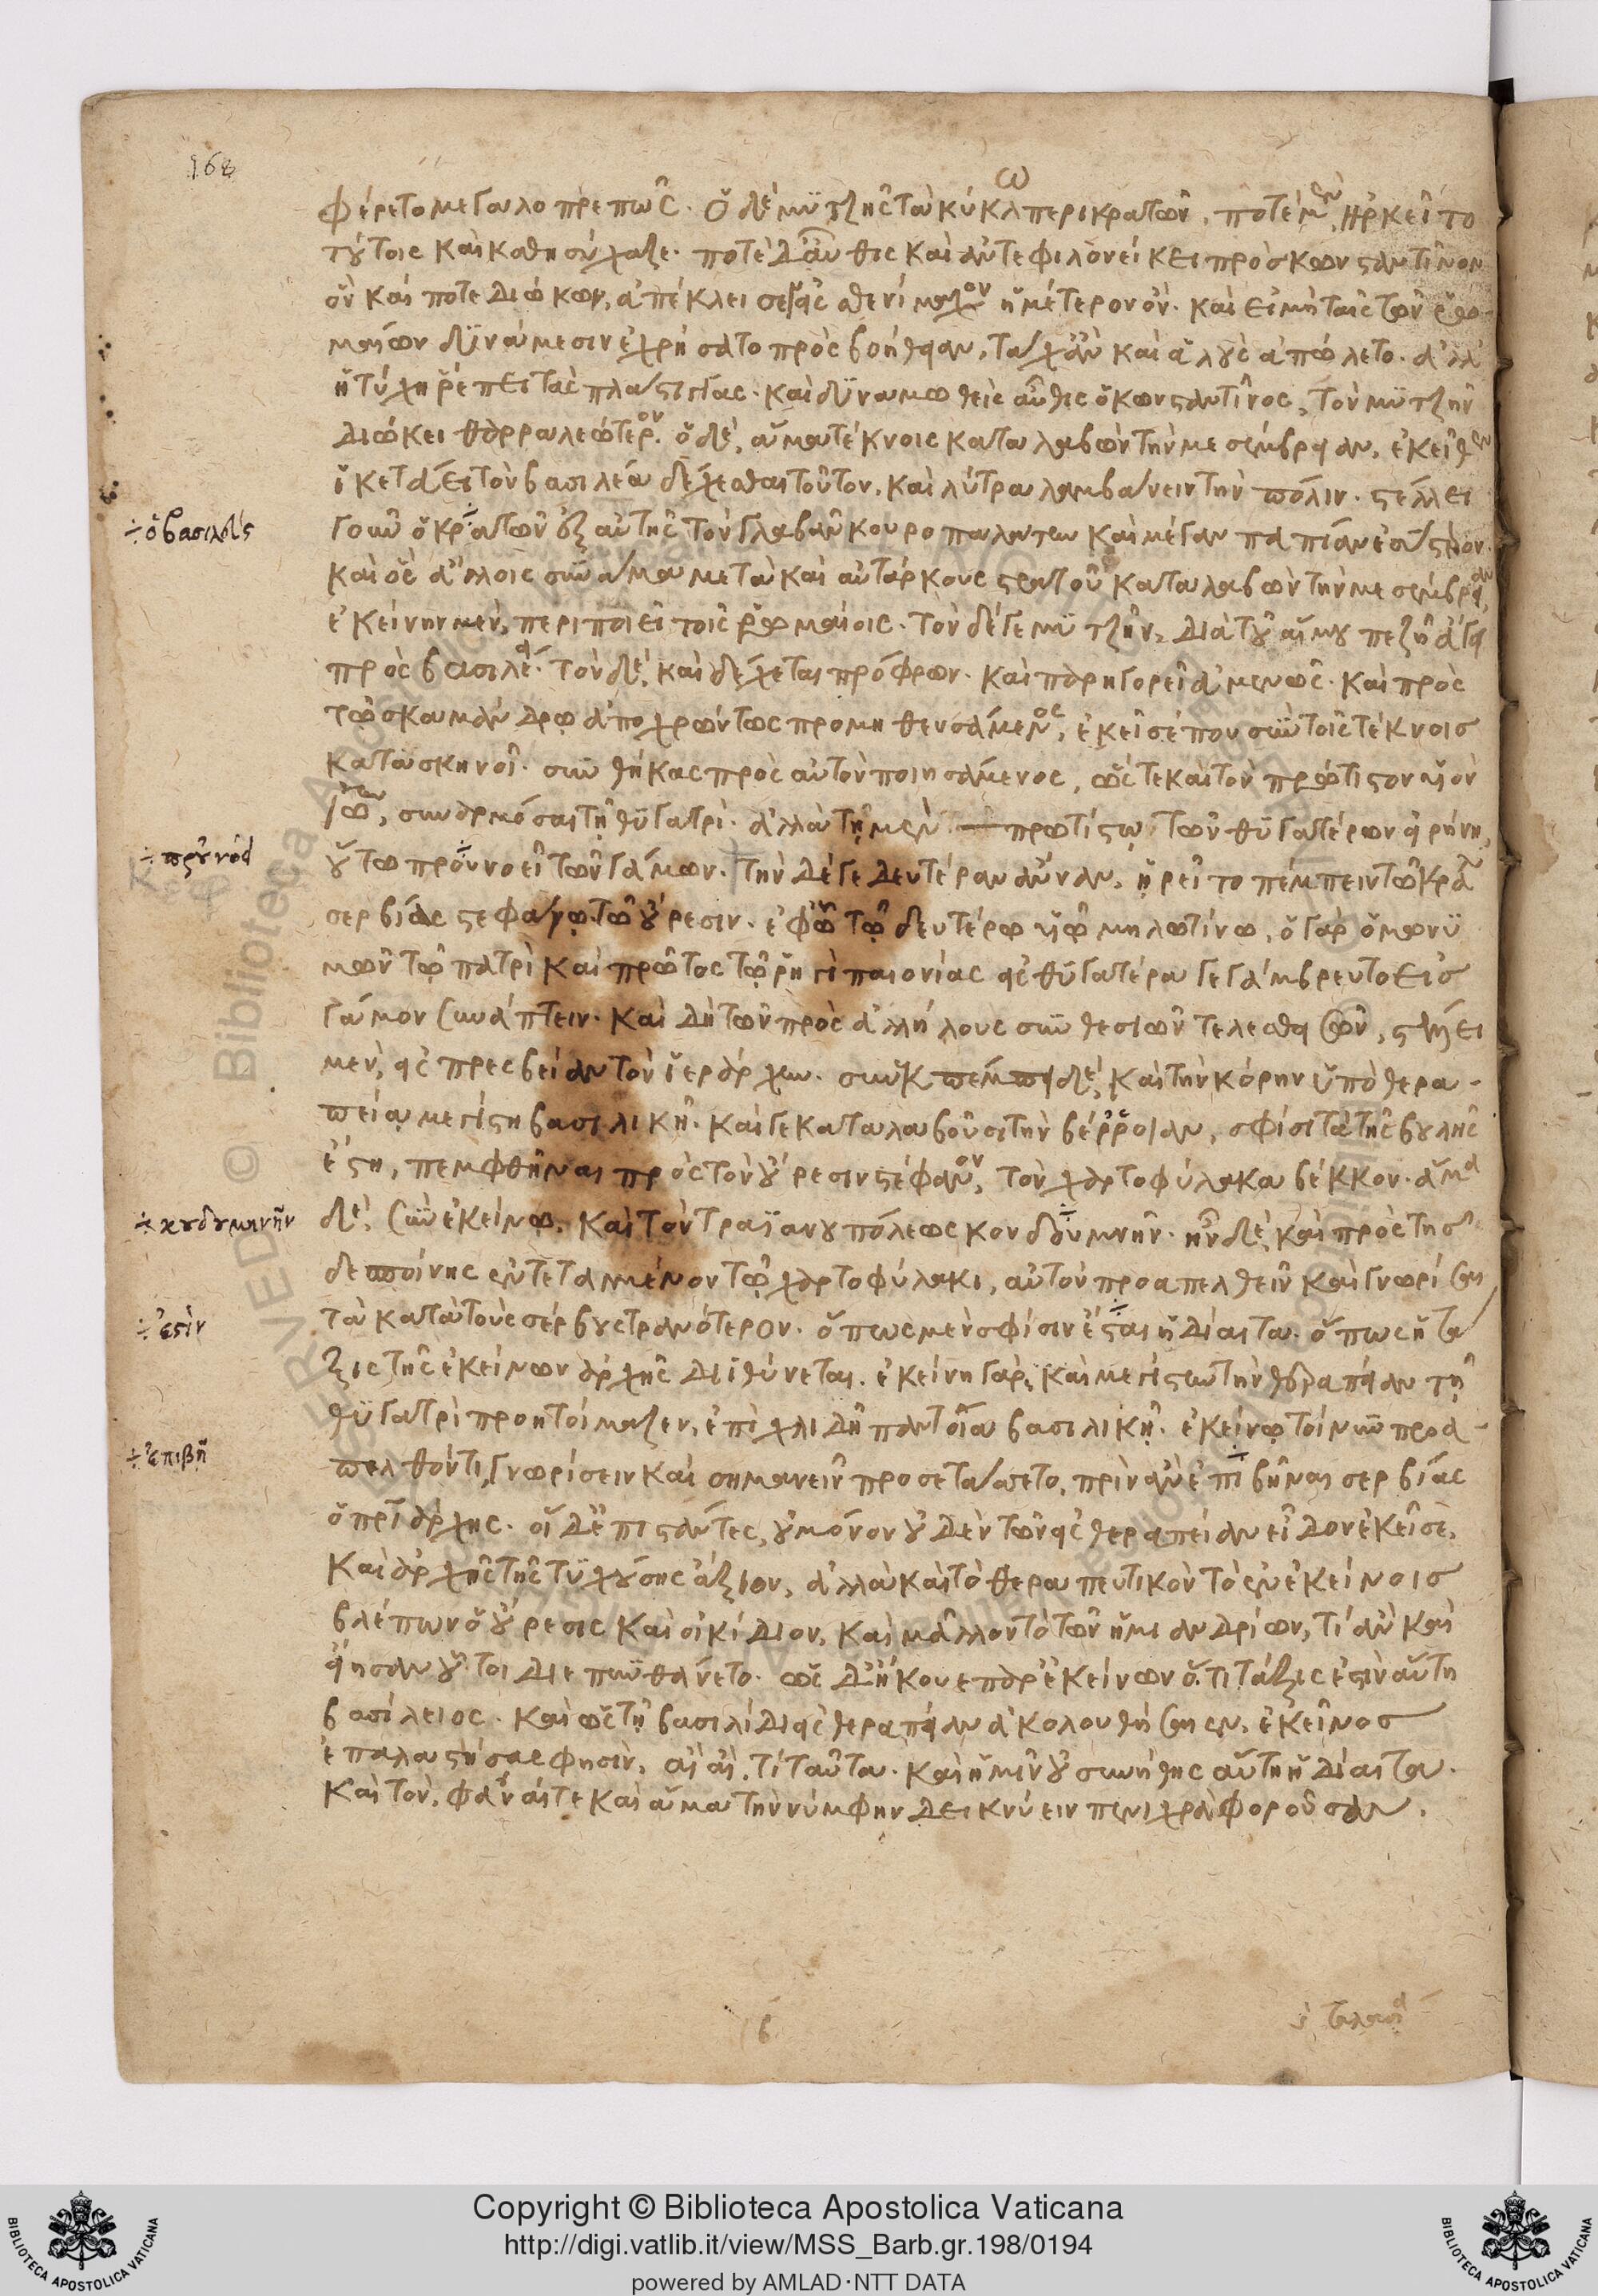 168
φέρετο μεγαλοπρεπῶς. ὁ δὲ μϋτζῆς τὰ κύκλω περικρατῶν, ποτὲ μὲν ἠρκεῖτο
τούτοις καὶ καθησύχαζε. ποτὲ δ' αὖθις καὶ ἀντεφιλονείκει πρὸς κωνσταντῖνον
ὃν καί ποτε διώκων, ἀπέκλεισε εἰς σθενίμαχον ἡμέτερον ὄν. καὶ εἰ μὴ ταῖς τῶν ῥω
μαίων δϋνάμεσιν ἐχρήσατο πρὸς βοήθειαν, τάχ' ἂν καὶ ἁλοὺς ἀπώλετο. ἀλλ'
ἡ τύχη ῥέπει τὰς πλάστιγγας. καὶ δϋναμωθεὶς αὖθις ὁ κωνσταντῖνος, τὸν μϋτζῆν
διώκει θαρραλεώτερον. ὁ δὲ, ἅμα τέκνοις καταλαβὼν τὴν μεσέμβρειαν, ἐκεῖθεν
ἱκετεύει τὸν βασιλέα δέχεσθαι τοῦτον, καὶ λύτρα λαμβάνειν τὴν πόλιν. στέλλει
÷ ὁ βασιλεὺς
γοῦν ὁ κρατῶν ἐξ αὐτῆς τὸν γλαβᾶν κουροπαλάτην καὶ μέγαν παπίαν ἐς ὕστερον.
καὶ ὃς ἄλλοις σϋνάμα μετὰ καὶ αὐτάρκους στρατοῦ καταλαβὼν τὴν μεσέμβρειαν,
ἐκείνην μὲν, περιποιεῖ τοῖς ῥωμαίοις. τὸν δέ γε μϋτζῆν, διὰ τοῦ αἵμου πεζῇ ἄγει
πρὸς βασιλέα. τὸν δὲ, καὶ δέχεται πρόφρων. καὶ παρηγορεῖ ἀσμένως. καὶ πρὸς
τῷ σκαμάνδρῳ ἀποχρώντως προμηθευσάμενος, ἐκεῖσέ που σϋν τοῖς τέκνοις
κατασκηνοῖ. σϋνθήκας πρὸς αὐτὸν ποιησάμενος, ὥστε καὶ τὸν πρώτιστον υἱὸν
ἰωάννην, συναρμόσαι τῇ θϋγατρί. ἀλλὰ τῇ μὲν πρωτίστῃ τῶν θϋγατέρων εἰρήνῃ,
÷ προὐνόει
οὕτω προὐνοεῖ τῶν γάμων. τὴν δέ γε δευτέραν ἄνναν, ᾑρεῖτο πέμπειν τῷ κράλῃ
σερβίας στεφάνῳ τῷ οὔρεσιν. ἐφ' ᾧ τῷ δευτέρῳ υἱῷ μηλωτίνῳ, ὁ γὰρ ὁμωνϋ
μῶν τῷ πατρὶ καὶ πρῶτος τῷ ῥηγὶ παιονίας εἰς θϋγατέρα γεγάμβρευτο εἰς
γάμον συνάπτειν. καὶ δὴ τῶν πρὸς ἀλλήλους σϋνθεσιῶν τελεσθεισῶν, στέλλει
μὲν, εἰς πρεσβείαν τὸν ἱεράρχην. συνεκπέμπει δὲ, καὶ τὴν κόρην ὑπὸ θερα-
πείᾳ μεγίστῃ βασιλικῇ. καί γε καταλαβοῦσι τὴν βέρροιαν, σφίσι τὰ τῆς βουλῆς
ἔστη, πεμφθῆναι πρὸς τὸν οὔρεσιν στέφανον, τὸν χαρτοφύλακα βέκκον. ἅμα
÷ κουδουμηνῆν
δὲ, σϋν ἐκείνῳ, καὶ τὸν τραϊανουπόλεως κονδουμνῆν. ἦν δὲ, καὶ πρὸς τῆς
δεσποίνης ἐντεταλμένον τῷ χαρτοφύλακι, αὐτὸν προαπελθεῖν καὶ γνωρίσαι
÷ ἐστὶν
τὰ κατὰ τοὺς σέρβους τρανότερον. ὅπως μὲν σφίσιν ἔσται ἡ δίαιτα. ὅπως ἡ τά
ξις τῆς ἐκείνων ἀρχῆς διϊθύνεται. ἐκείνη γὰρ, καὶ μεγίστην τὴν θεραπείαν τῇ
θϋγατρὶ προητοίμαζεν, ἐπὶ χλιδῇ παντοίᾳ βασιλικῇ. ἐκείνῳ τοίνϋν προα-
÷ ἐπιβῇ
πελθόντι, γνωρίσειν καὶ σημανεῖν προσετάσσετο, πρὶν ἂν ἐπιβῆναι σερβίας
ὁ πριάρχης. οἱ δ' ἐπιστάντες, οὐ μόνον οὐδὲν τῶν εἰς θεραπείαν εἶδον ἐκεῖσε,
καὶ ἀρχῆς τῆς τϋχούσης ἄξιον, ἀλλὰ καὶ τὸ θεραπευτικὸν τὸ ἐν ἐκείνοις
βλέπων ὁ οὔρεσις καὶ οἰκίδιον, καὶ μᾶλλον τὸ τῶν ἡμιανδρίων, τί ἂν καὶ
εἴησαν οὗτοι διεπϋνθάνετο. ὡς δ' ἤκουε παρ' ἐκείνων ὅτι τάξις ἐστὶν αὕτη
βασίλειος. καὶ ὡς τῇ βασιλίδι εἰς θεραπείαν ἀκολουθήσαιεν, ἐκεῖνος
ἐπαλαστήσας φησὶν, αἲ αἲ, τί ταῦτα. καὶ ἡμῖν οὐ συνήθης αὕτη ἡ δίαιτα.
καὶ τὸν, φάναι τε καὶ ἅμα τὴν νύμφην δεικνύειν πενιχρὰ φοροῦσαν.
Copyright © Biblioteca Apostolica Vaticana
http://digi.vatlib.it/view/MSS_Barb.gr.198/0194
powered by AMLAD·NTT DATA
BIBLIOTECA APOSTOLICA VATICANA
BIBLIOTECA APOSTOLICA VATICANA